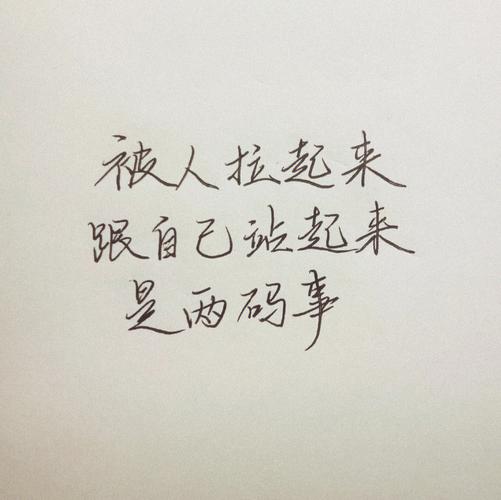 被人拉起来
跟自己站起来
是两码事